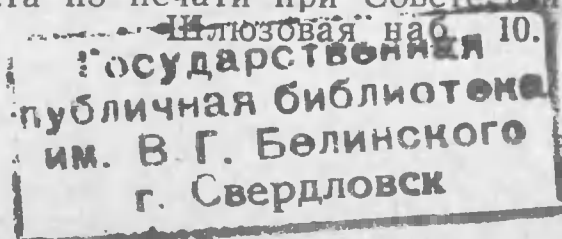 та по печати при Совете
Шлюзовая наб., 10.
Государственная
публичная библиотека
им. В. Г. Белинского
г. Свердловск